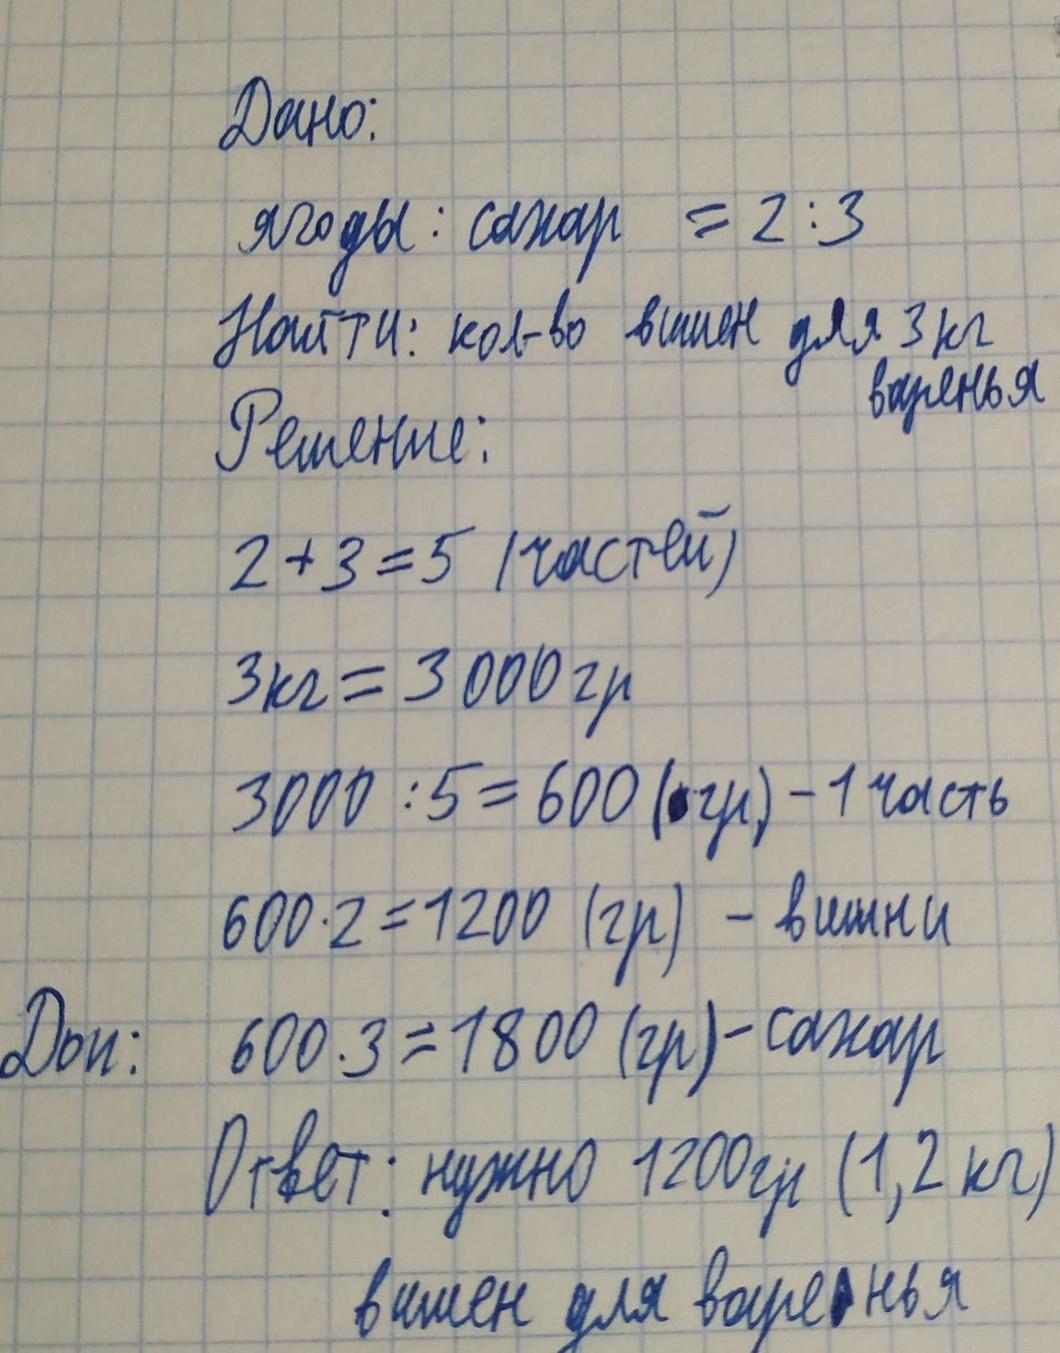 Дано:
ягоды : сахар = 2:3
Найти: кол-во вишен для 3 кг
варенья
Решение:
2+3=5 (частей)
3кг = 3000гр
3000 :5=600 (гр) - 1 часть
600·2=1200 (гр) - вишни
Доп: 600·3=1800 (гр)-сахар
Ответ: нужно 1200гр (1,2 кг)
вишен для варенья